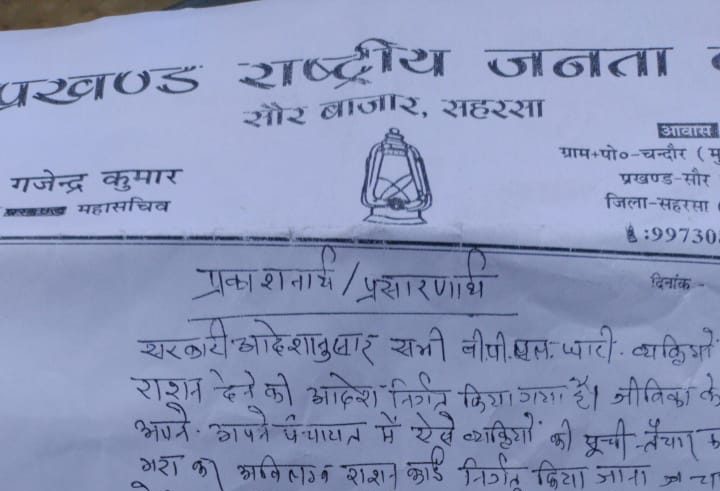 प्रखण्ड राष्ट्रीय जनता
सौर बाजार, सहरसा
आवास
ग्राम+पो०-चन्दौर
प्रखण्ड-सौर
जिला-सहरसा
गजेन्द्र कुमार
प्रखण्ड महासचिव
:99730
प्रकाशनार्थ/प्रसारणार्थ
दिनांक-
सरकारी आदेशानुसार सभी बी.पी.एल. धारी व्यक्तियों
राशन देने को आदेश निर्गत किया गया है। जीविका के
अपने-अपने पंचायत में ऐसे व्यक्तियों की सूची तैयार क
का अविलम्ब राशन कार्ड निर्गत किया जाना